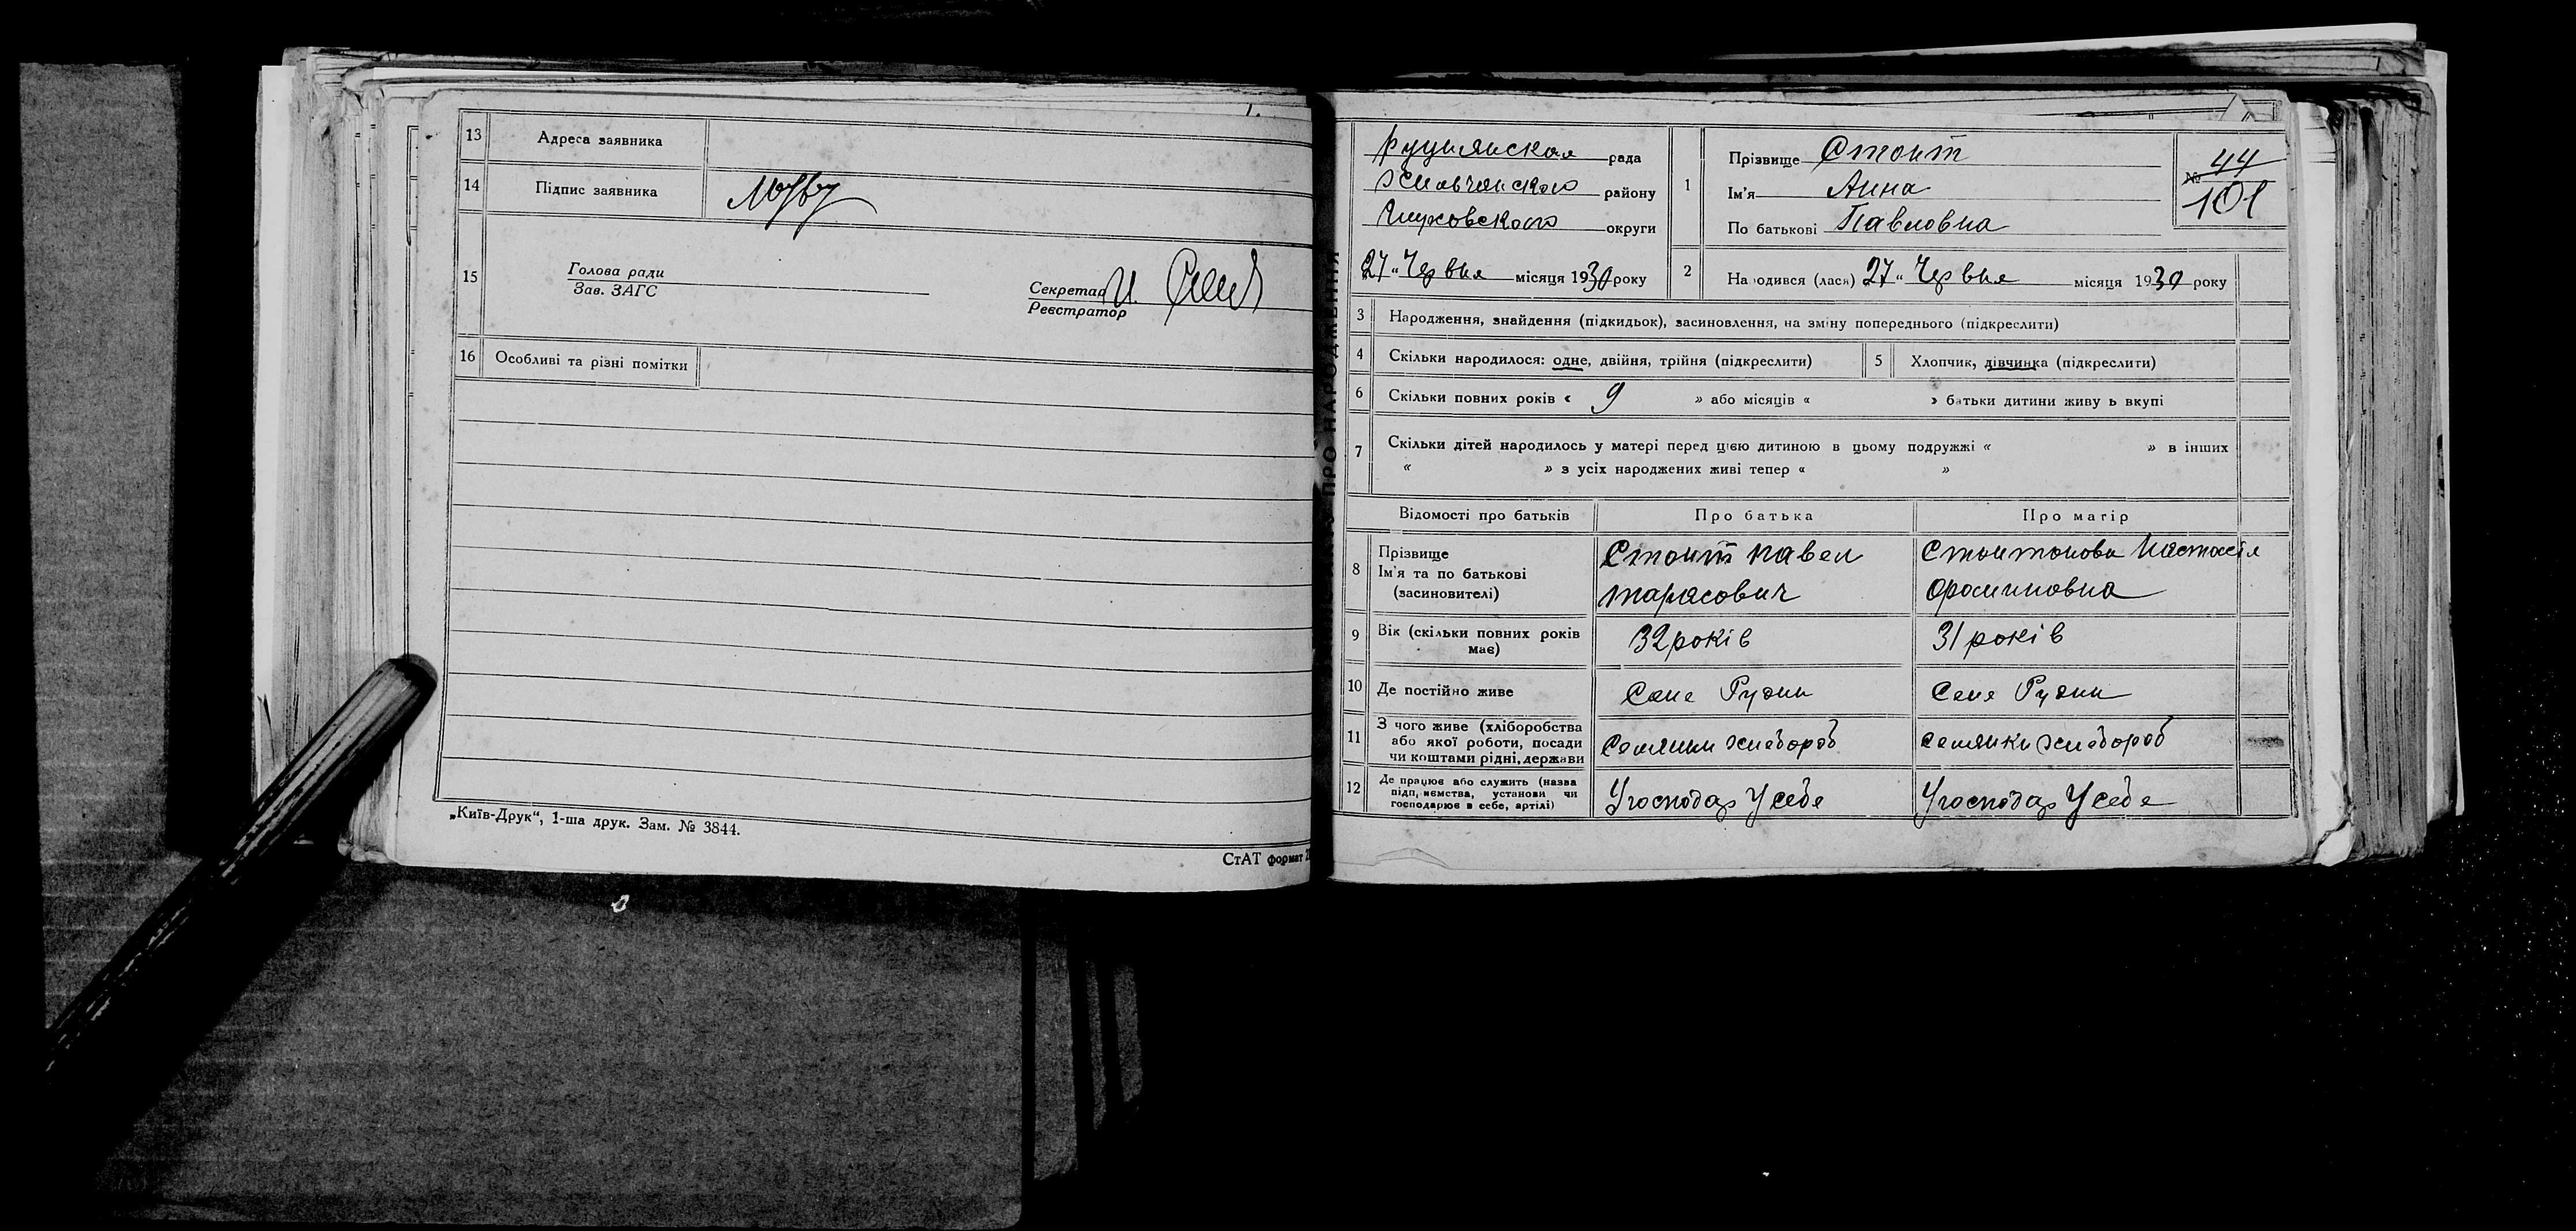 13 Адреса заявника
14 Підпис заявника
15 Голова ради
Зав. ЗАГС
Секретар И.
Реєстратор
16 Особливі та різні помітки
„Київ-Друк“, 1-ша друк. Зам. № 3844.
СтАТ формат
рада
району
округи
27 „ Червня місяця 1930 року
1 Прізвище Стоит
Ім'я Анна
По батькові Павловна
№ 44
101
2 На одився (лася) 27 „ Червня місяця 1930 року
3 Народження, знайдення (підкидьок), засиновлення, на зміну попереднього (підкреслити)
4 Скільки народилося: одне, двійня, трійня (підкреслити)
5 Хлопчик, дівчинка (підкреслити)
6 Скільки повних років « 9 » або місяців « » батьки дитини живу ь вкупі
7 Скільки дітей народилось у матері перед цією дитиною в цьому подружжі « » в інших
« » з усіх народжених живі тепер « »
Відомості про батьків Про батька Про матір
8 Прізвище
Ім'я та по батькові
(засиновителі)
Стоит павел
тарасович
Настасія
9 Вік (скільки повних років
має)
32 років
31 років
10 Де постійно живе
Селе Рудни
Селе Рудни
11 З чого живе (хліборобства
або якої роботи, посади
чи коштами рідні, держави
Селянин хлебороб
селянки хлебороб
12 Де працює або служить (назва
підп, иємства, установи чи
господарює в себе, артілі)
Угосподар Усебе
Угосподар Усебе